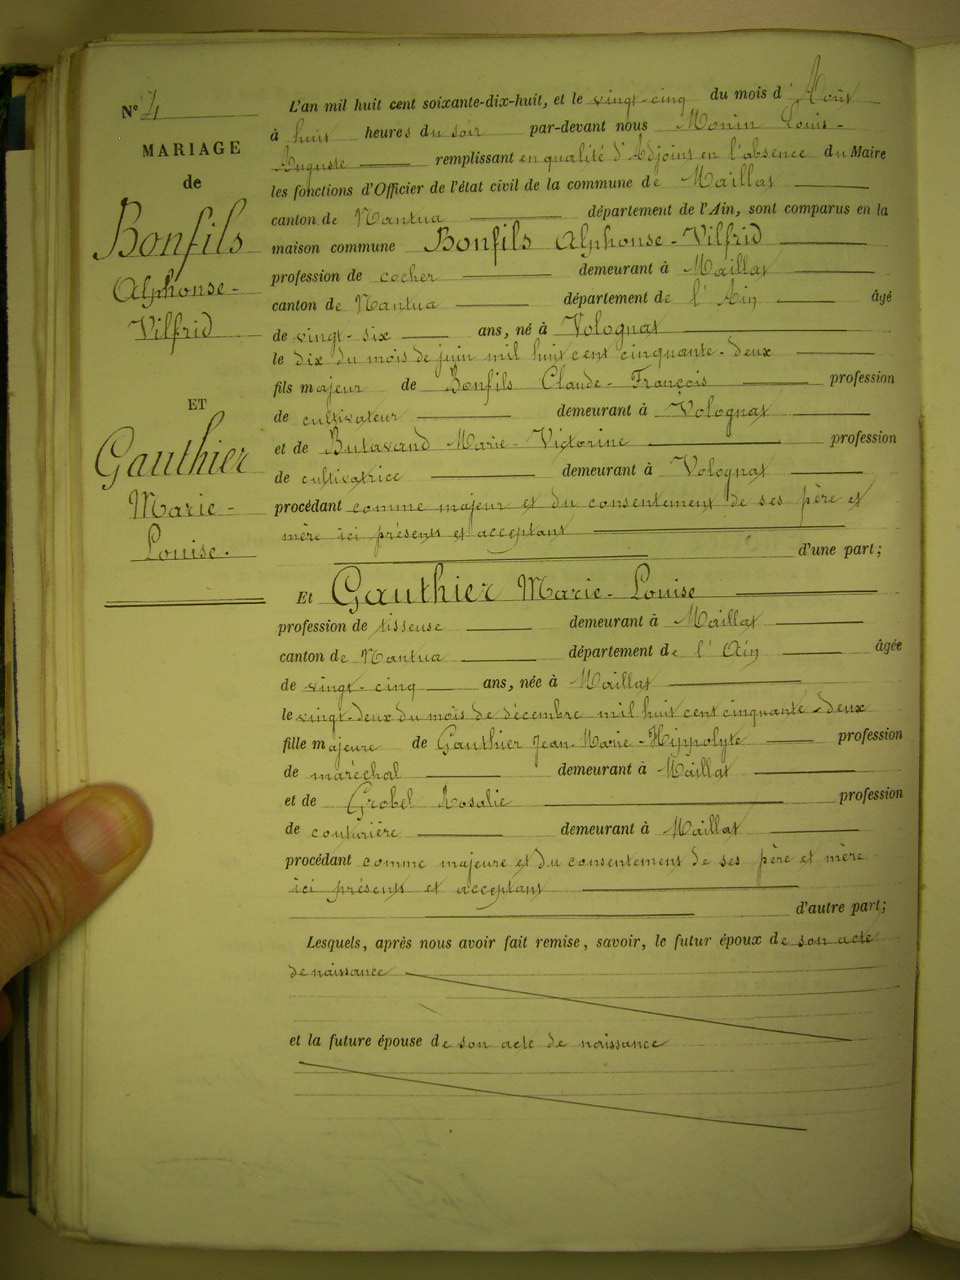 N° 4
MARIAGE
de
Bonfils
Alphonse-
Vilfrid
ET
Gauthier
Marie-
Louise.
L'an mil huit cent soixante-dix-huit, et le vingt-cinq du mois d'Août
à huit heures du soir par-devant nous Monin Louis-
Auguste remplissant en qualité d'Adjoint en l'absence du Maire
les fonctions d'Officier de l'état civil de la commune de Maillat
canton de Nantua département de l'Ain, sont comparus en la
maison commune Bonfils Alphonse-Vilfrid
profession de cocher demeurant à Maillat
canton de Nantua département de l'Ain âgé
de vingt-six ans, né à Volognat
le dix du mois de juin mil huit cent cinquante-deux
fils majeur de Bonfils Claude-François profession
de cultivateur demeurant à Volognat
et de Butavand Marie-Victorine profession
de cultivatrice demeurant à Volognat
procédant comme majeur et du consentement de ses père et
mère ici présents et acceptant d'une part;
Et Gauthier Marie-Louise
profession de tisseuse demeurant à Maillat
canton de Nantua département de l'Ain âgée
de vingt-cinq ans, née à Maillat
le vingt-deux du mois de décembre mil huit cent cinquante-deux
fille majeure de Gauthier Jean-Marie-Hippolyte profession
de maréchal demeurant à Maillat
et de Grobel Rosalie profession
de couturière demeurant à Maillat
procédant comme majeure et du consentement de ses père et mère
ici présents et acceptant
d'autre part;
Lesquels, après nous avoir fait remise, savoir, le futur époux de son acte
de naissance
et la future épouse de son acte de naissance